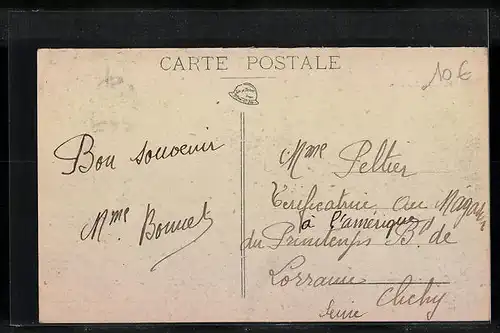 CARTE POSTALE
10€
Bon souvenir
Mme Bonnet
Mme Peltier
Vérificatrice au Magasin
à l'amérique
du Printemps Bd de
Lorraine
Clichy
Seine